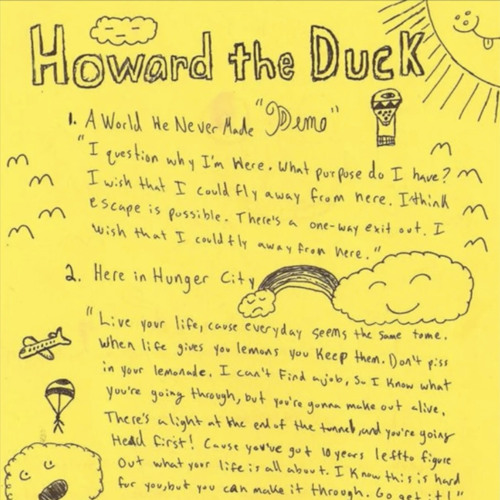 Howard the Duck
1. A World He Never Made "Demo"
"I question why I'm Here. What purpose do I have?
I wish that I could fly away from here. I think
escape is possible. There's a one-way exit out. I
wish that I could fly away from here."
2. Here in Hunger City
"Live your life, cause everyday seems the same to me.
When life gives you lemons you Keep them. Don't piss
in your lemonade. I can't find a job, so I Know what
you're going through, but you're gunna make out alive.
There's a light at the end of the tunnel, and you're going
Head first! Cause you've got 10 years left to figure
Out what your life is all about. I Know this is hard
for you, but you can make it through. Go get it!"